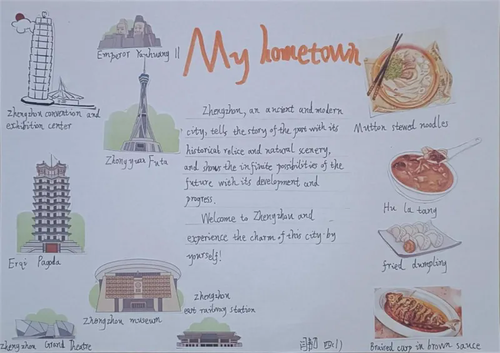 My hometown
Emperor Yanhuang II
Zhengzhou convention and
exhibition center
Zhong yuan Futa
Erqi Pagoda
Zhengzhou museum
zhengzhou
east railway station
Zhengzhou Grand Theatre
Zhengzhou, an ancient and modern
city, tells the story of the past with its
historical relics and natural scenery,
and shows the infinite possibilities of the
future with its development and
progress.
Welcome to Zhengzhou and
experience the charm of this city by
yourself!
Mutton stewed noodles
Hu la tang
fried dumpling
Braised carp in brown sauce